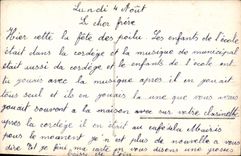 Lundi 4 Août
L cher frère
Hier cette la fête des poilu. Les enfants de l'école
était dans la cordège et la musique de municipal
était aussi da cordège et le enfants de l'école ont
tu jouais avec la musique après il en jouait
tous seul et ils en jouais la une que vous avez
jouait souvent a la maison avec sur votre clarinette
après la cordège il on était au café du Mauris
pour le moment j'n'est plus de nouvelle a vous
dire Et je fini, ma carte en vous disons une grosses